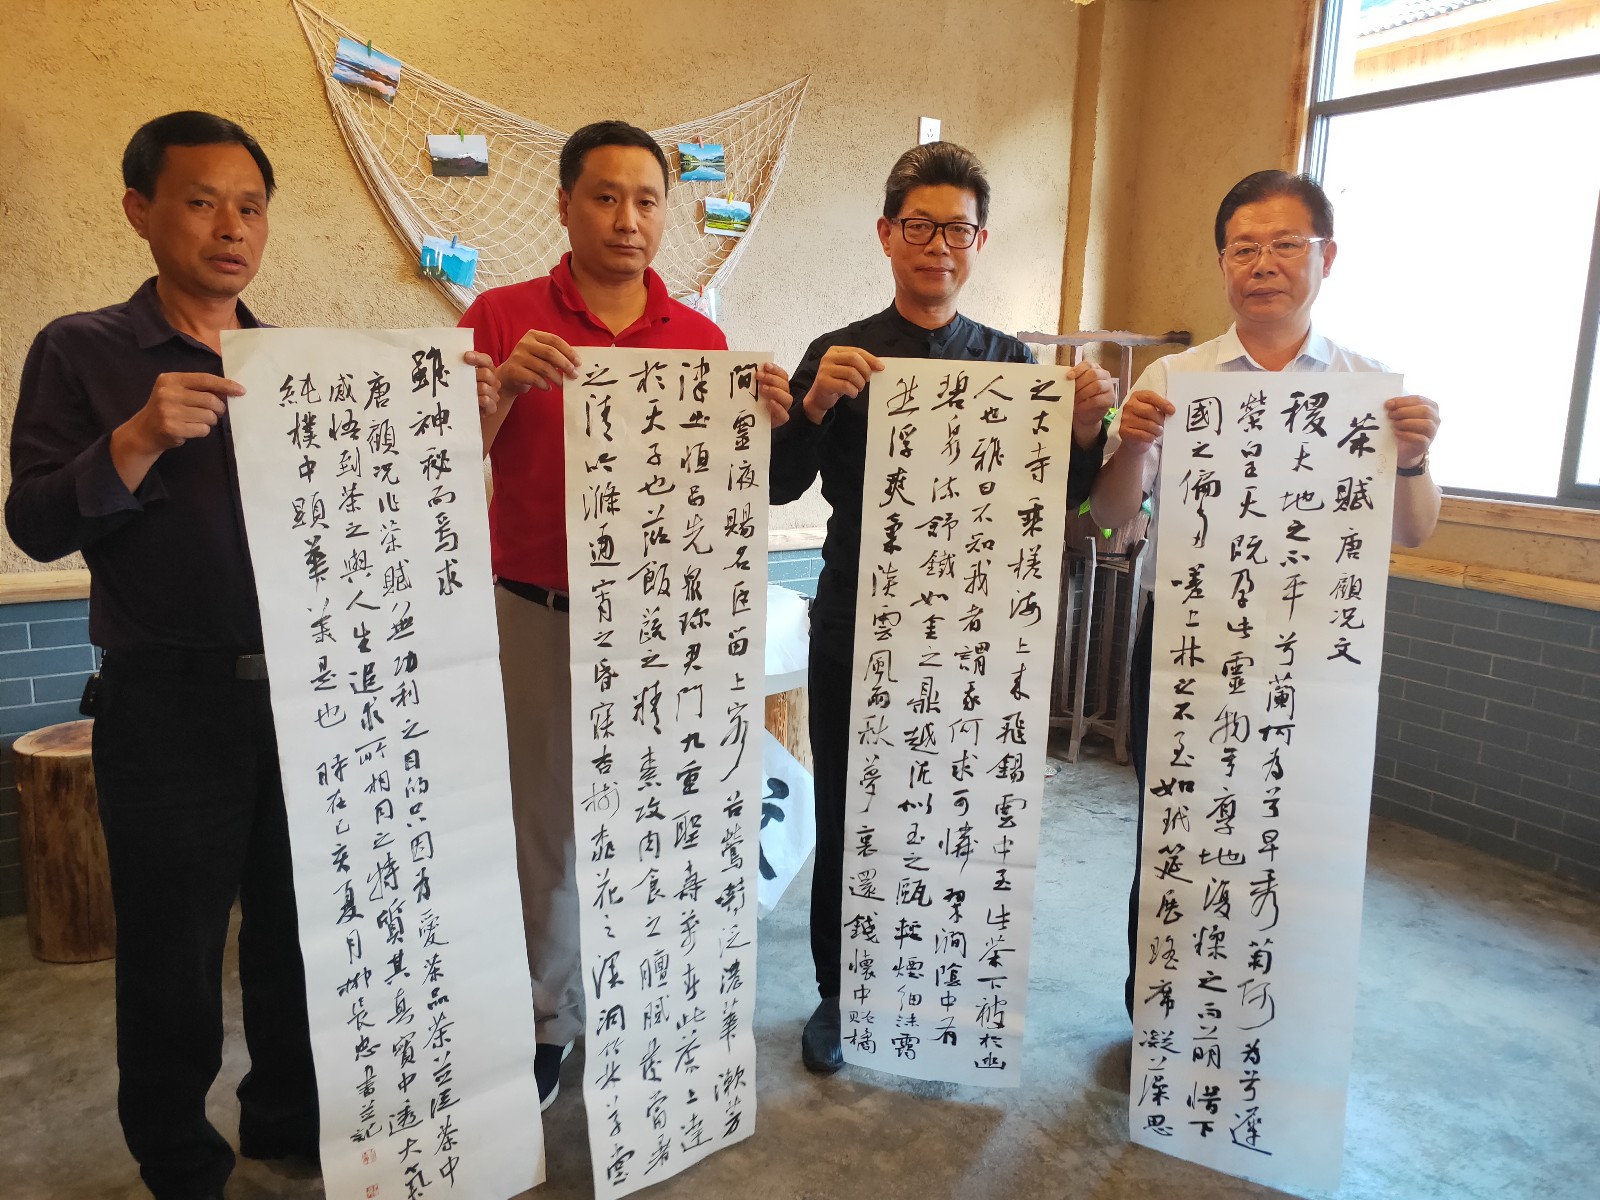 茶賦唐顧況文
稷天地之不平兮蘭何為兮早秀菊何為兮遲
榮皇天既孕此靈物兮厚地復糅之而萌惜下
國之偏多嗟上林之不至如玳筵展瑤席凝藻思
之古寺乘槎海上來飛錫雲中至此茶下被於幽
人也雅曰不知我者謂我何求可憐翠澗陰中有
碧泉流舒鐵如金之鼎越泥似玉之甌輕煙細沫靄
然浮爽氣淡雲風雨秋夢裏還錢懷中貽橘
間靈液賜名臣留上客谷鶯囀泛濃華漱芳
津出恒品先眾珍君門九重聖壽萬春此茶上達
於天子也滋飯蔬之精素攻肉食之膻膩發當暑
之清吟滌通宵之昏寐杏樹桃花之深洞竹林草堂
雖神秘而焉求
唐顧況作茶賦無功利之目的只因為愛茶品茶並從茶中
感悟到茶之與人生追求所相同之特質其真實中透大氣
純樸中顯華美是也 時在己亥夏月柳長忠書並記